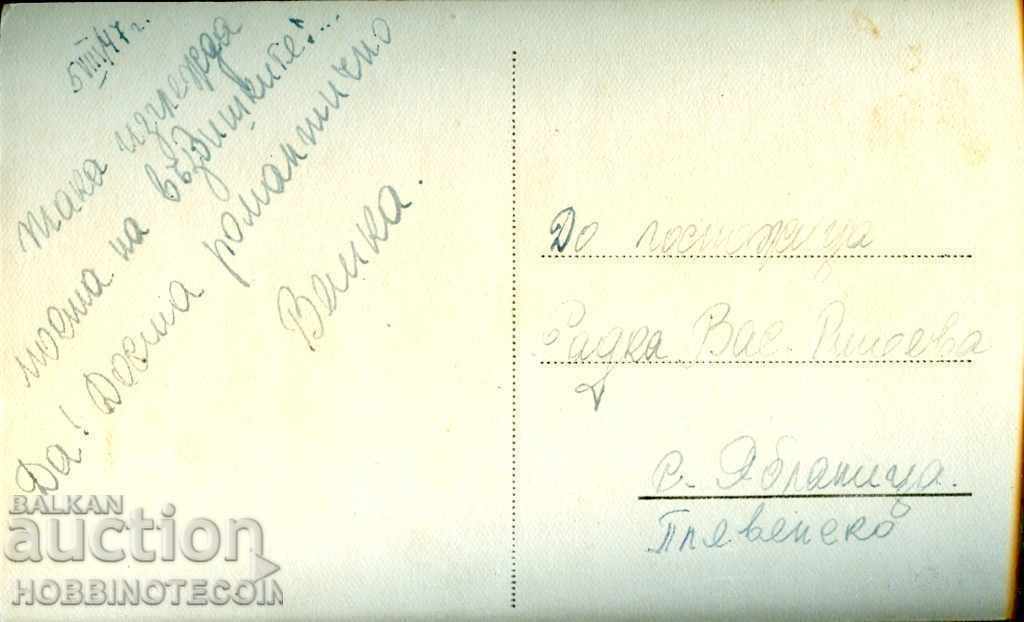 5 VIII/47 г.
така изглежда
моста на въздишките!...
Да! Доста романтично
Велика.
До госпожица
Радка Вас.
с. Ябланица.
Плевенско
BALKAN
auction
HOBBINOTECOIN